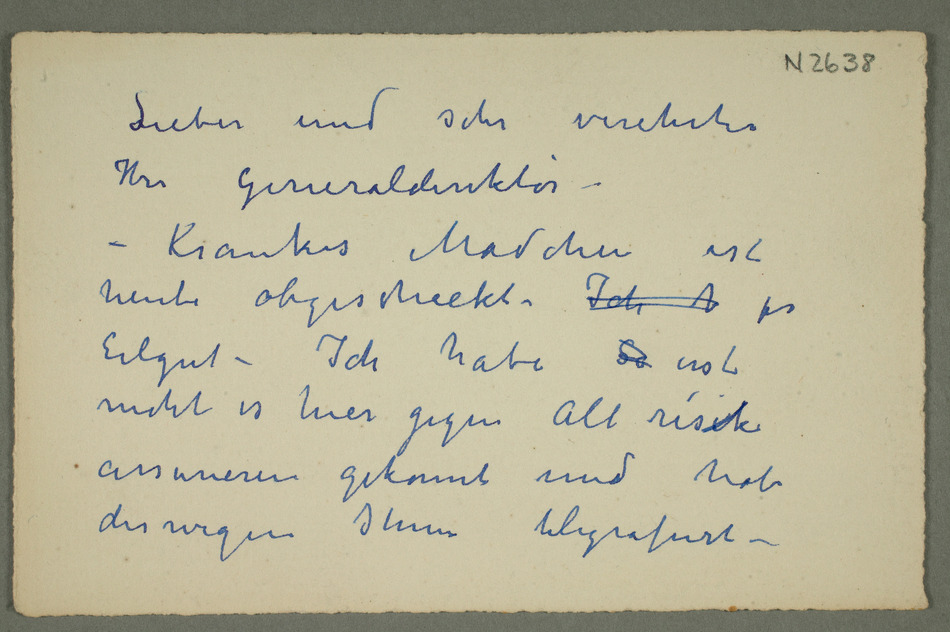 N2638
Lieber und sehr verehrter
Herr Generaldirektor –
– Krankes Mädchen ist
heute abgeschickt – Ich h per
Eilgut – Ich habe So erst
nicht es hier gegen All risik
assurieren gekonnt und habe
deswegen Ihnen telegrafiert –